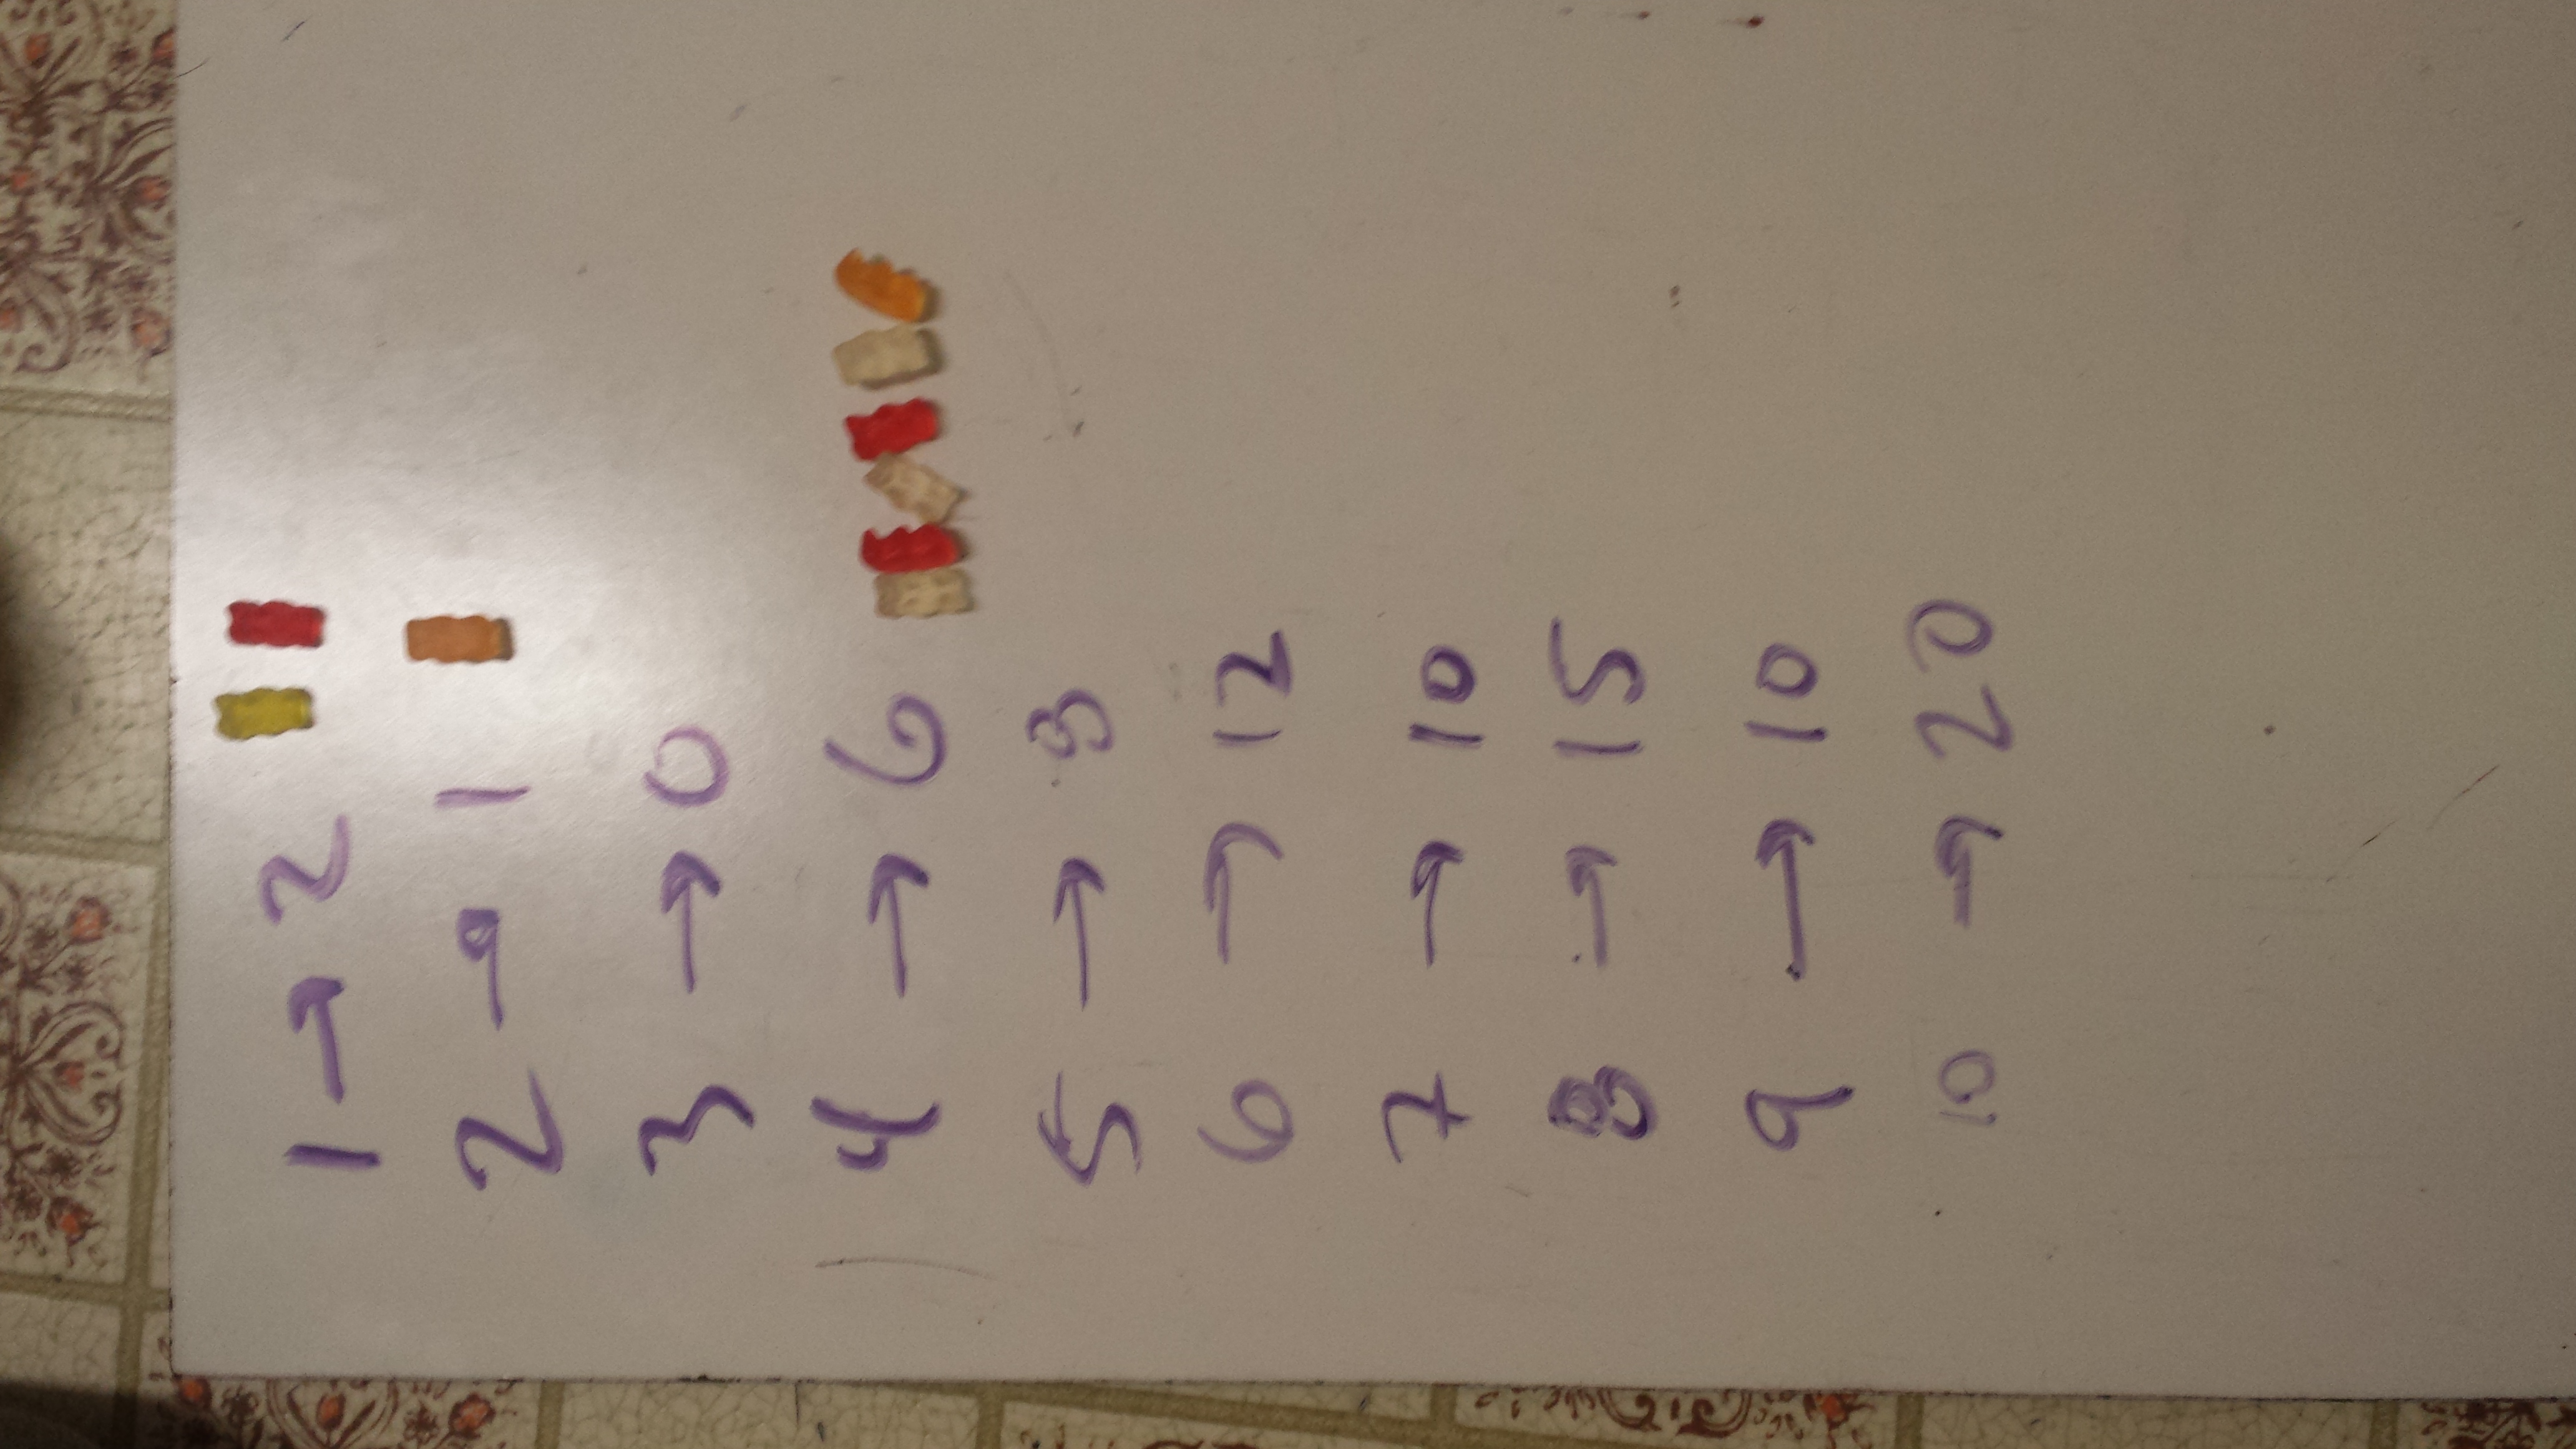 1 → 2
2 → 1
3 → 0
4 → 6
5 → 8
6 → 12
7 → 10
8 → 15
9 → 10
10 → 20